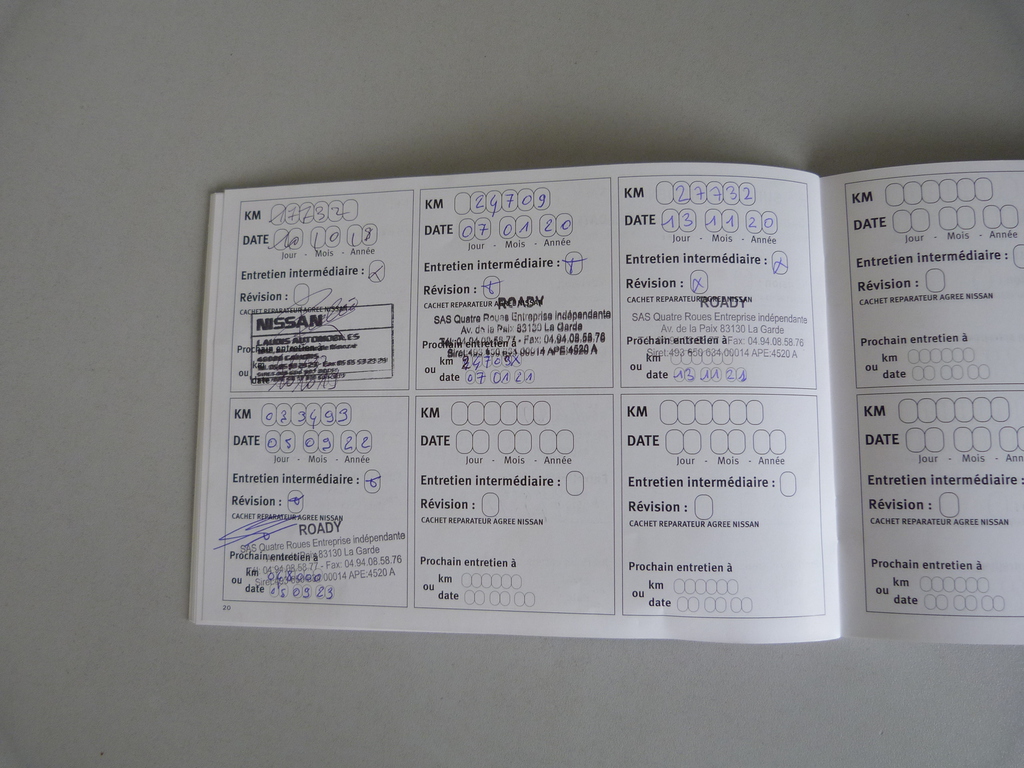 KM 17732
DATE 10 10 18
Jour - Mois - Année
Entretien intermédiaire : X
Révision :
CACHET REPARATEUR AGREE NISSAN
NISSAN
LAUDIS AUTOMOBILES
Prochain entretien à
km
ou
date
KM 24709
DATE 07 01 20
Jour - Mois - Année
Entretien intermédiaire :
Révision :
CACHET REPARATEUR AGREE NISSAN
ROADY
SAS Quatre Roues Entreprise indépendante
Av. de la Paix 83130 La Garde
Tél. 04.94.08.58.77 - Fax: 04.94.08.58.76
Prochain entretien à
Siret:493 650 634 00014 APE:4520 A
km
ou
date 07 01 21
KM 27732
DATE 13 11 20
Jour - Mois - Année
Entretien intermédiaire : X
Révision : X
CACHET REPARATEUR AGREE NISSAN
ROADY
SAS Quatre Roues Entreprise indépendante
Av. de la Paix 83130 La Garde
Prochain entretien à
Fax: 04.94.08.58.76
Siret:493 650 634 00014 APE:4520 A
km
ou
date 13 11 21
KM
DATE
Jour - Mois - Année
Entretien intermédiaire
Révision :
CACHET REPARATEUR AGREE NISSAN
Prochain entretien à
km
ou
date
KM 033493
DATE 05 09 22
Jour - Mois - Année
Entretien intermédiaire :
Révision :
CACHET REPARATEUR AGREE NISSAN
ROADY
SAS Quatre Roues Entreprise indépendante
83130 La Garde
Prochain entretien à
Tél. 04.94.08.58.77 - Fax: 04.94.08.58.76
00014 APE:4520 A
km 048000
ou
date 05 09 23
20
KM
DATE
Jour - Mois - Année
Entretien intermédiaire :
Révision :
CACHET REPARATEUR AGREE NISSAN
Prochain entretien à
km
ou
date
KM
DATE
Jour - Mois - Année
Entretien intermédiaire :
Révision :
CACHET REPARATEUR AGREE NISSAN
Prochain entretien à
km
ou
date
KM
DATE
Jour - Mois - Ann
Entretien intermédiaire :
Révision :
CACHET REPARATEUR AGREE NISSAN
Prochain entretien à
km
ou
date